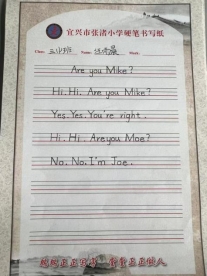 宜兴市张渚小学硬笔书写纸
Class: Name: Mark:
Are you Mike?
Hi. Hi. Are you Mike?
Yes. Yes. You're right.
Hi. Hi. Are you Moe?
No. No. I'm Joe.